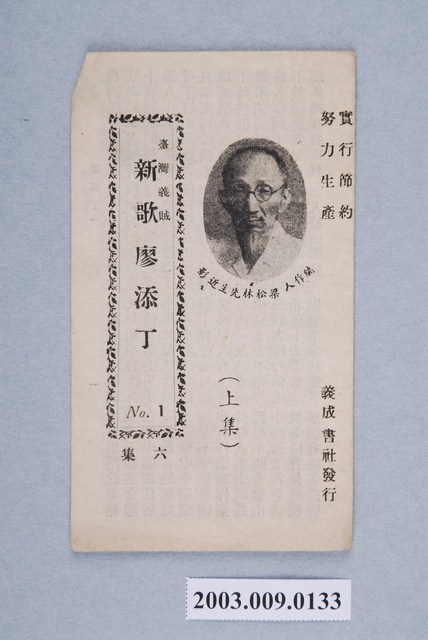 實行節約
努力生產
義成書社發行
編作人梁松林先生近影
(上集)
臺灣義賊
新歌廖添丁
No. 1
六集
2003.009.0133